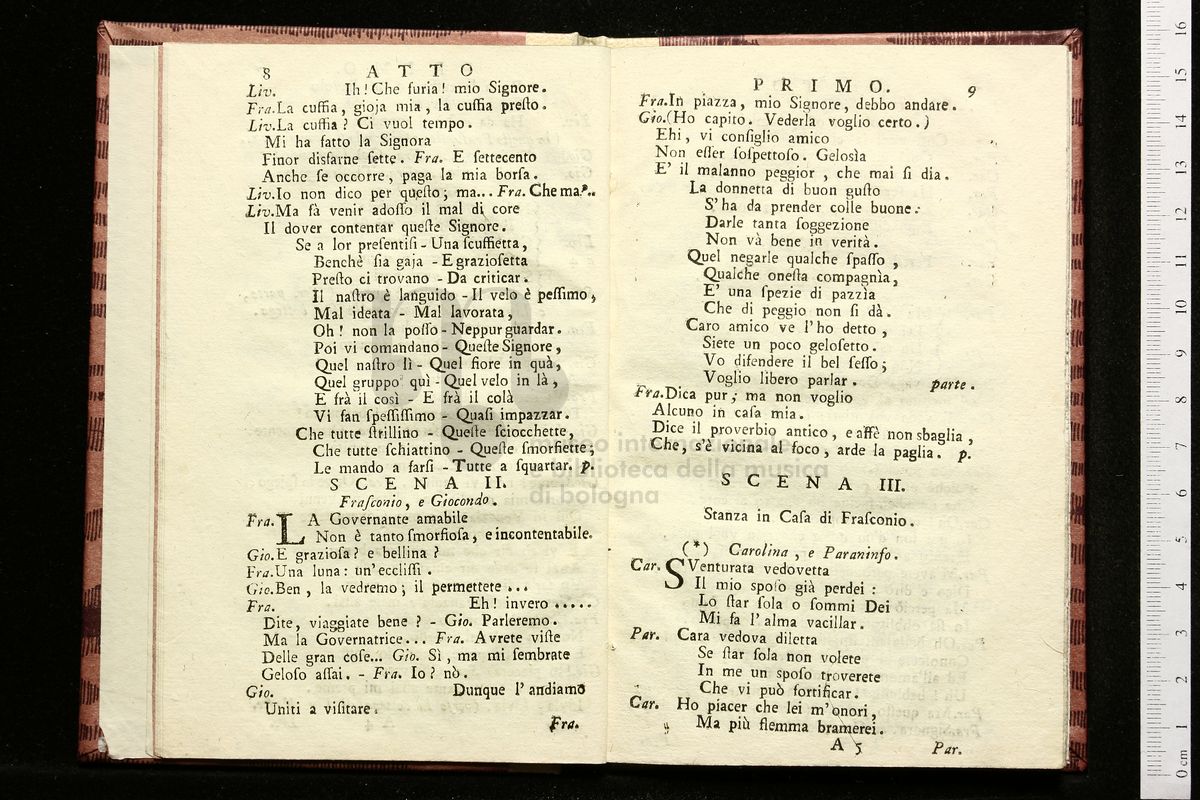 8 ATTO
Liv. Ih! Che furia! mio Signore.
Fra. La cuffia, gioja mia, la cuffia preſto.
Liv. La cuffia? Ci vuol tempo.
Mi ha fatto la Signora
Finor disfarne ſette. Fra. E ſettecento
Anche ſe occorre, paga la mia borſa.
Liv. Io non dico per queſto; ma... Fra. Che ma?..
Liv. Ma fà venir adoſſo il mal di core
Il dover contentar queſte Signore.
Se a lor preſentiſi - Una ſcuffietta,
Benchè ſia gaja - E grazioſetta
Preſto ci trovano - Da criticar.
Il naſtro è languido - Il velo è peſſimo,
Mal ideata - Mal lavorata,
Oh! non la poſſo - Neppur guardar.
Poi vi comandano - Queſte Signore,
Quel naſtro lì - Quel fiore in quà,
Quel gruppo quì - Quel velo in là,
E frà il così - E frà il colà
Vi fan ſpeſſiſſimo - Quaſi impazzar.
Che tutte ſtrillino - Queſte ſciocchette,
Che tutte ſchiattino - Queſte ſmorfiette;
Le mando a farſi - Tutte a ſquartar. p.
SCENA II.
Fraſconio, e Giocondo.
Fra. LA Governante amabile
Non è tanto ſmorfioſa, e incontentabile.
Gio. E grazioſa? e bellina?
Fra. Una luna: un'eccliſſi.
Gio. Ben, la vedremo; il permettete...
Fra. Eh! invero.....
Dite, viaggiate bene? - Gio. Parleremo.
Ma la Governatrice... Fra. Avrete viſte
Delle gran coſe... Gio. Sì, ma mi ſembrate
Geloſo aſſai. - Fra. Io? nò.
Gio. Dunque l'andiamo
Uniti a viſitare.
Fra.
PRIMO. 9
Fra. In piazza, mio Signore, debbo andare.
Gio. (Ho capito. Vederla voglio certo.)
Ehi, vi conſiglio amico
Non eſſer ſoſpettoſo. Geloſìa
E' il malanno peggior, che mai ſi dia.
La donnetta di buon guſto
S'ha da prender colle buone:
Darle tanta ſoggezione
Non và bene in verità.
Quel negarle qualche ſpaſſo,
Qualche oneſta compagnìa,
E' una ſpezie di pazzìa
Che di peggio non ſi dà.
Caro amico ve l'ho detto,
Siete un poco geloſetto.
Vo difendere il bel ſeſſo;
Voglio libero parlar. parte.
Fra. Dica pur; ma non voglio
Alcuno in caſa mia.
Dice il proverbio antico, e affè non sbaglia,
Che, s'è vicina al foco, arde la paglia. p.
SCENA III.
Stanza in Caſa di Fraſconio.
(*) Carolina, e Paraninfo.
Car. SVenturata vedovetta
Il mio ſpoſo già perdei:
Lo ſtar ſola o ſommi Dei
Mi fa l'alma vacillar.
Par. Cara vedova diletta
Se ſtar ſola non volete
In me un ſpoſo troverete
Che vi può fortificar.
Car. Ho piacer che lei m'onori,
Ma più flemma bramerei.
A 5 Par.
museo internazionale
e biblioteca della musica
di bologna
0 cm 1 2 3 4 5 6 7 8 9 10 11 12 13 14 15 16